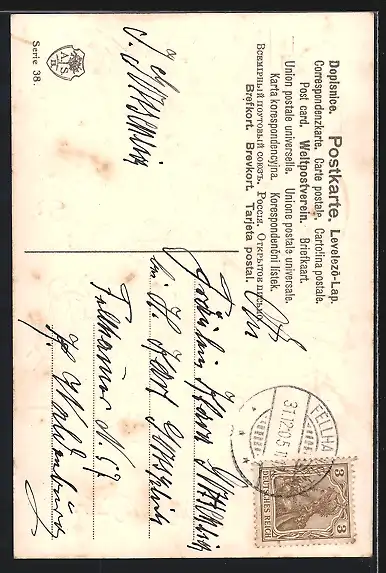 Dopisnice. Postkarte. Levelező-Lap.
Correspondenzkarte. Carte postale. Cartolina postale.
Post card. Weltpostverein. Briefkaart.
Union postale universelle. Unione postale universale.
Karta korespondencyjna. Korespondenční lístek.
Всемірный почтовый союзъ. Россія. Открытое письмо.
Brefkort. Brevkort. Tarjeta postal.
An
Fräulein Klara
bei H. Karl
Fellhammer N. 57
b/ Waldenburg
FELLHA
31.12.05.
3 3
DEUTSCHES REICH
Serie 38.